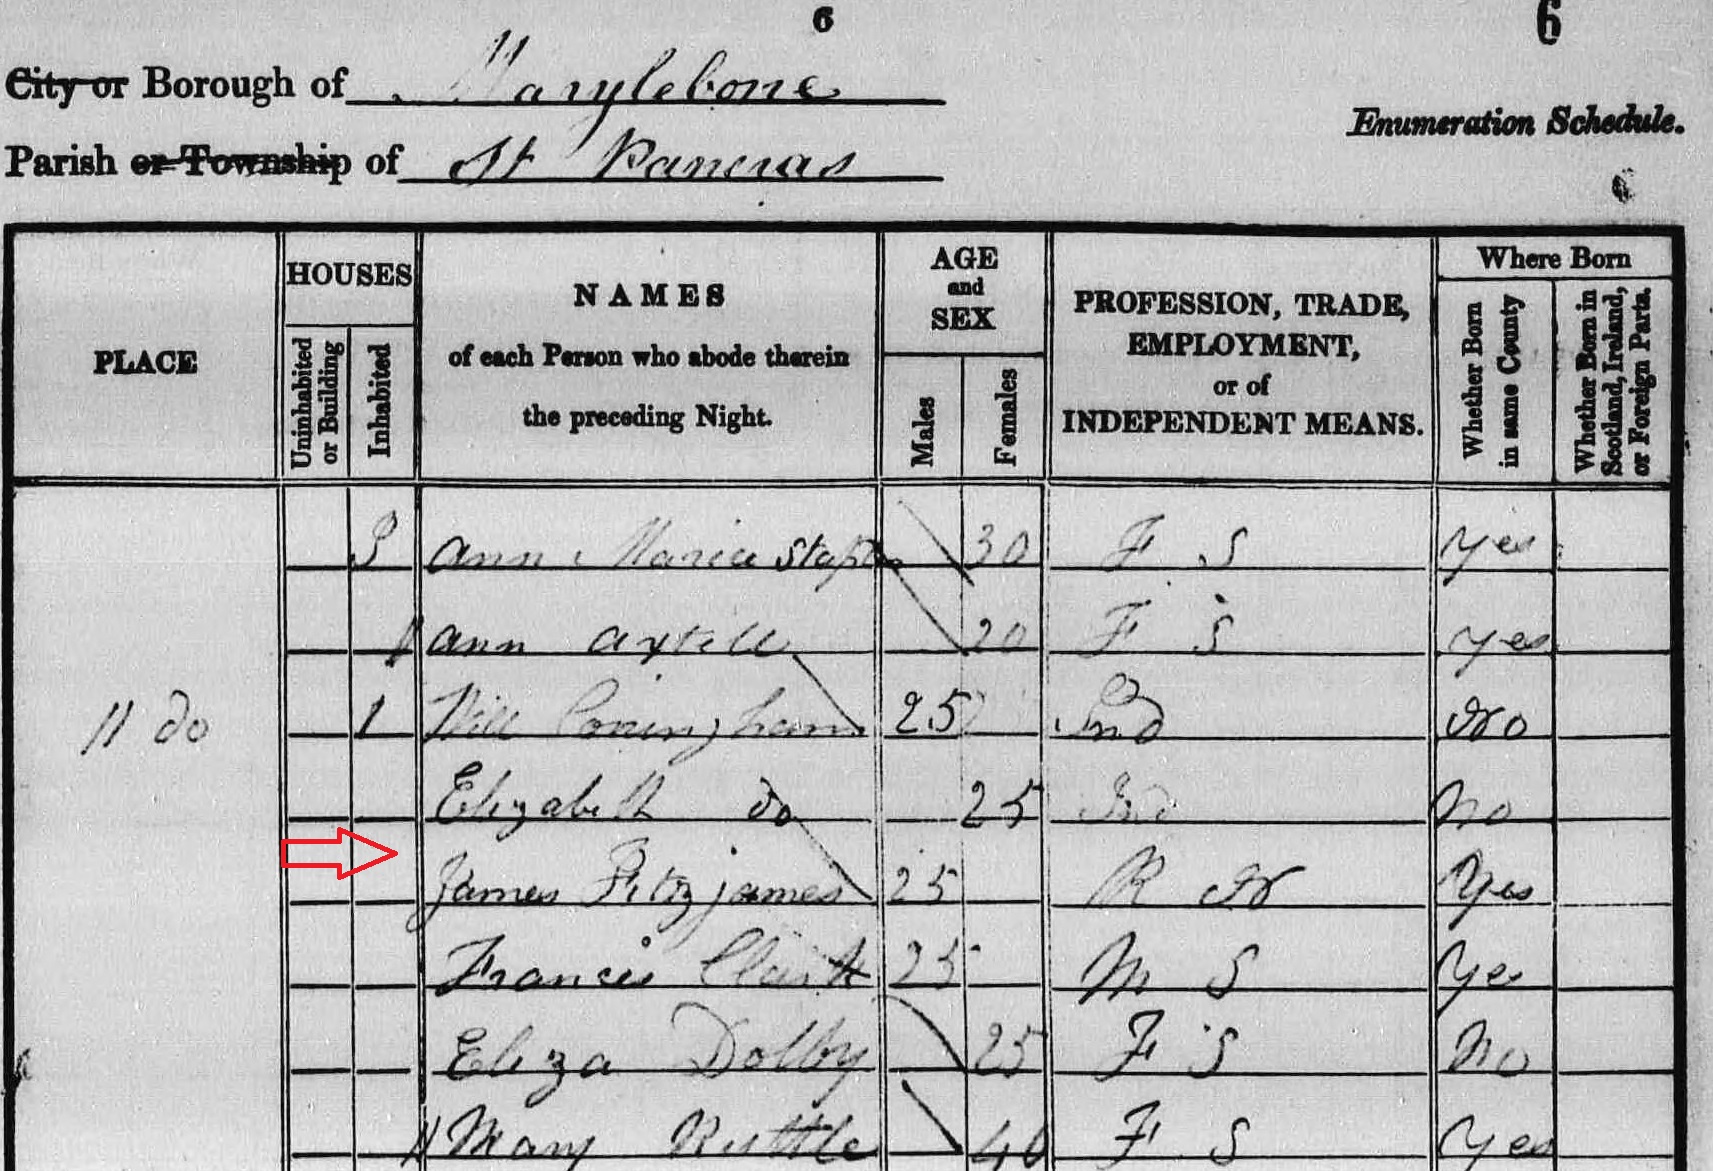 6
6
City or Borough of Marylebone
Enumeration Schedule.
Parish or Township of St Pancras
PLACE
HOUSES
Uninhabited or Building
Inhabited
NAMES
of each Person who abode therein
the preceding Night.
AGE
and
SEX
Males
Females
PROFESSION, TRADE,
EMPLOYMENT,
or of
INDEPENDENT MEANS.
Where Born
Whether Born in same County
Whether Born in Scotland, Ireland, or Foreign Parts.
Ann Maria 30 F S Yes
Ann Axtell 20 F S Yes
11 do 1 Will Coningham 25 Ind No
Elizabeth do 25 Ind No
James Fitzjames 25 R N Yes
Francis Clark 25 M S Yes
Eliza Dolby 25 F S No
Mary 40 F S Yes